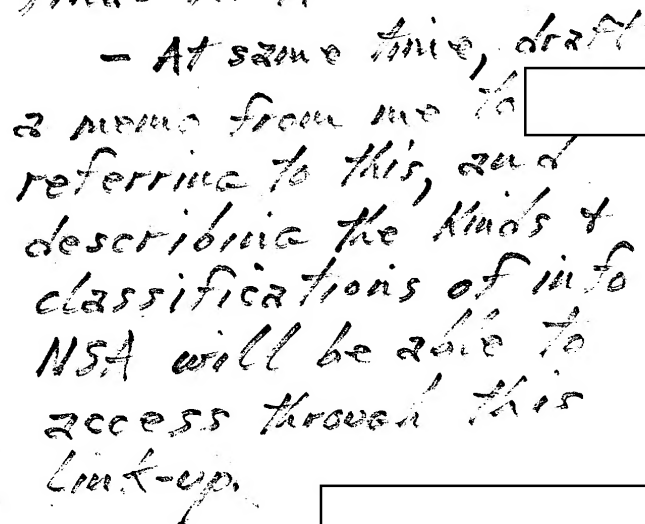 - At same time, draft
a memo from me to
referring to this, and
describing the kinds &
classifications of info
NSA will be able to
access through this
link-up.